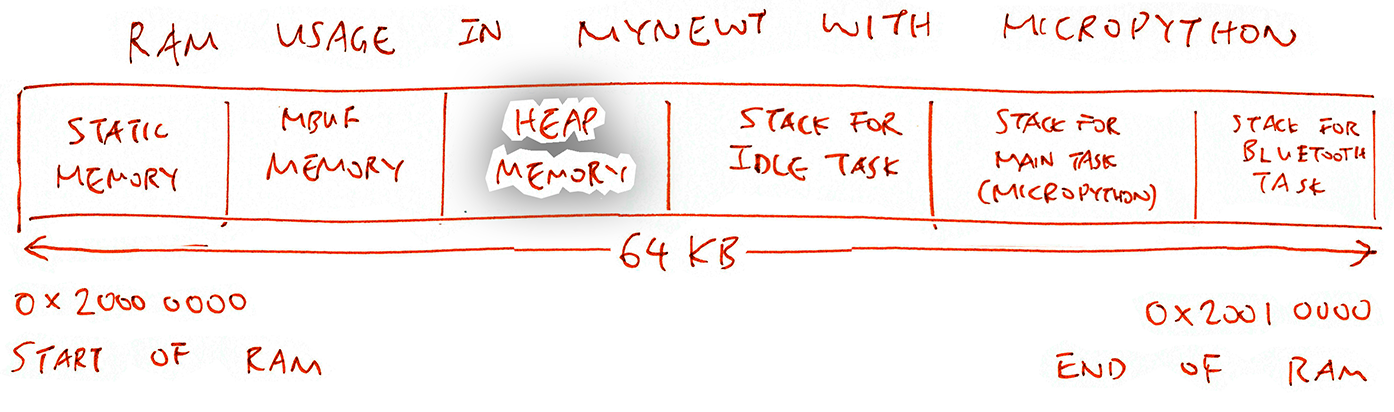 RAM USAGE IN MYNEWT WITH MICROPYTHON
STATIC
MEMORY
MBUF
MEMORY
HEAP
MEMORY
STACK FOR
IDLE TASK
STACK FOR
MAIN TASK
(MICROPYTHON)
STACK FOR
BLUETOOTH
TASK
64 KB
0x2000 0000
START OF RAM
0x2001 0000
END OF RAM